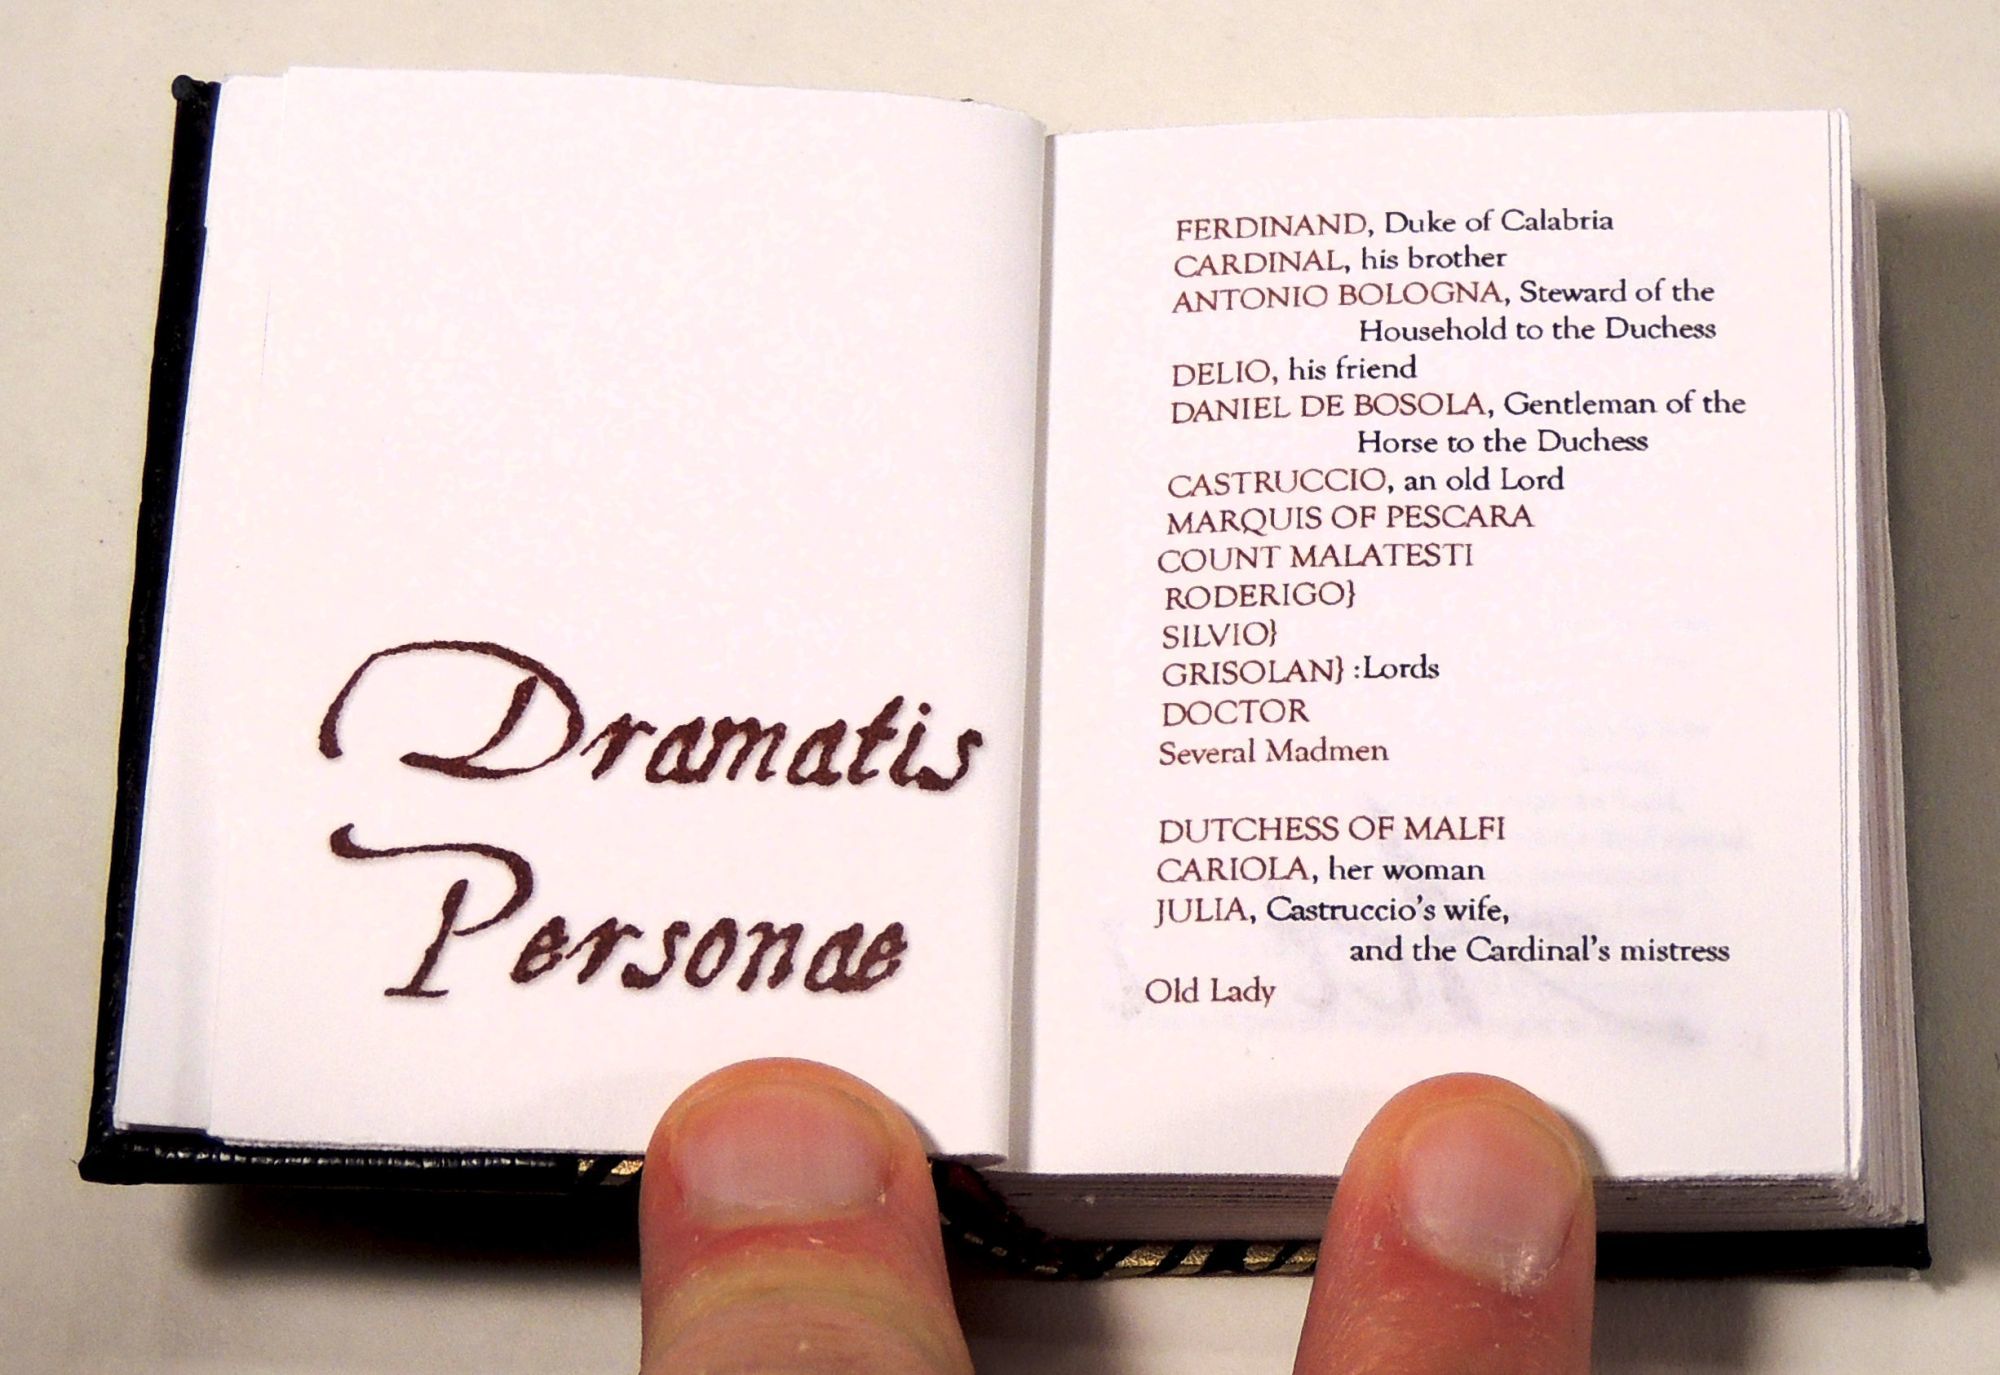 Dramatis
Personae
FERDINAND, Duke of Calabria
CARDINAL, his brother
ANTONIO BOLOGNA, Steward of the
Household to the Duchess
DELIO, his friend
DANIEL DE BOSOLA, Gentleman of the
Horse to the Duchess
CASTRUCCIO, an old Lord
MARQUIS OF PESCARA
COUNT MALATESTI
RODERIGO}
SILVIO}
GRISOLAN} :Lords
DOCTOR
Several Madmen
DUTCHESS OF MALFI
CARIOLA, her woman
JULIA, Castruccio's wife,
and the Cardinal's mistress
Old Lady